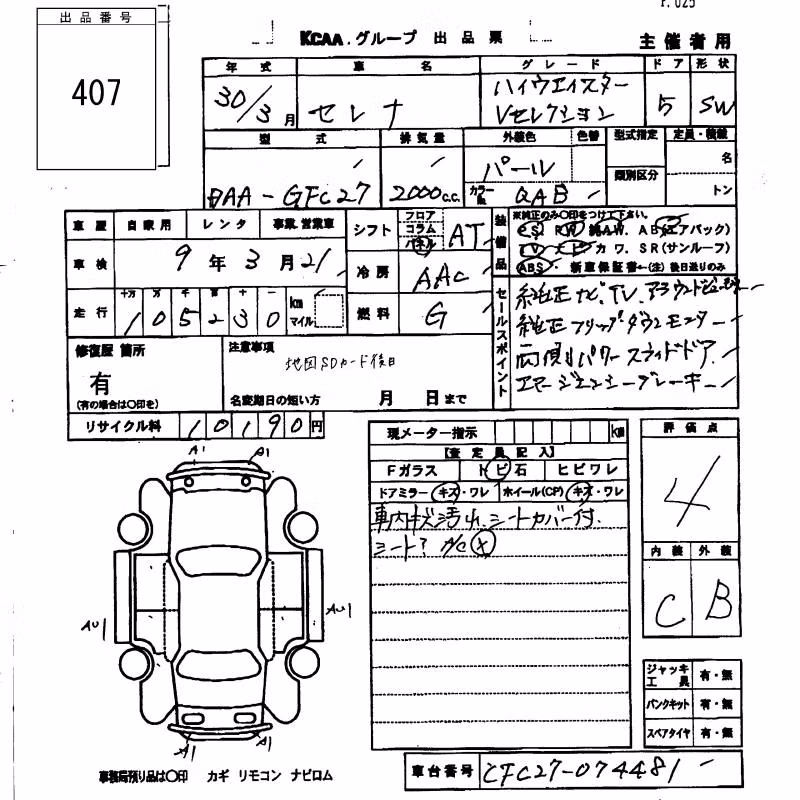 出品番号
407
KCAA.グループ 出品票
主催者用
年式 車名 グレード ドア 形状
30/3月 セレナ ハイウエイスター Vセレクション 5 SW
型式 排気量 外装色 色替 型式指定 定員・積載
DAA-GFC27 2000c.c. パール 類別区分 名
カラーNo. QAB トン
車歴 自家用 レンタ 事業.営業車
シフト フロア コラム パネル AT
装備品 ※純正のみ○印をつけて下さい。
PS PW 純AW. AB(エアバック)
TV ナビ カワ. SR(サンルーフ)
ABS・新車保証書←(注)後日送りのみ
車検 9年3月21
冷房 AAC
走行 十万 万 千 百 十 一
105230 km マイル
燃料 G
セールスポイント
純正ナビ、TV、アラウンドビューモニター
純正フリップダウンモニター
両側パワースライドドア
エマージェンシーブレーキ
修復歴 箇所
有
(有の場合は○印を)
注意事項
地図SDカード後日
名変期日の短い方 月 日まで
リサイクル料 10190円
現メーター指示 km
【査定員記入】
Fガラス トビ石 ヒビワレ
ドアミラー キズ・ワレ ホイール(CP) キズ・ワレ
車内キズ汚れ、シートカバー付.
シート? A/C×
評価点
4
内装 外装
C B
A1 A1
AU1 AU1
A1 A1
ジャッキ工具 有・無
パンクキット 有・無
スペアタイヤ 有・無
事務局預り品は○印 カギ リモコン ナビロム
車台番号 CFC27-074481